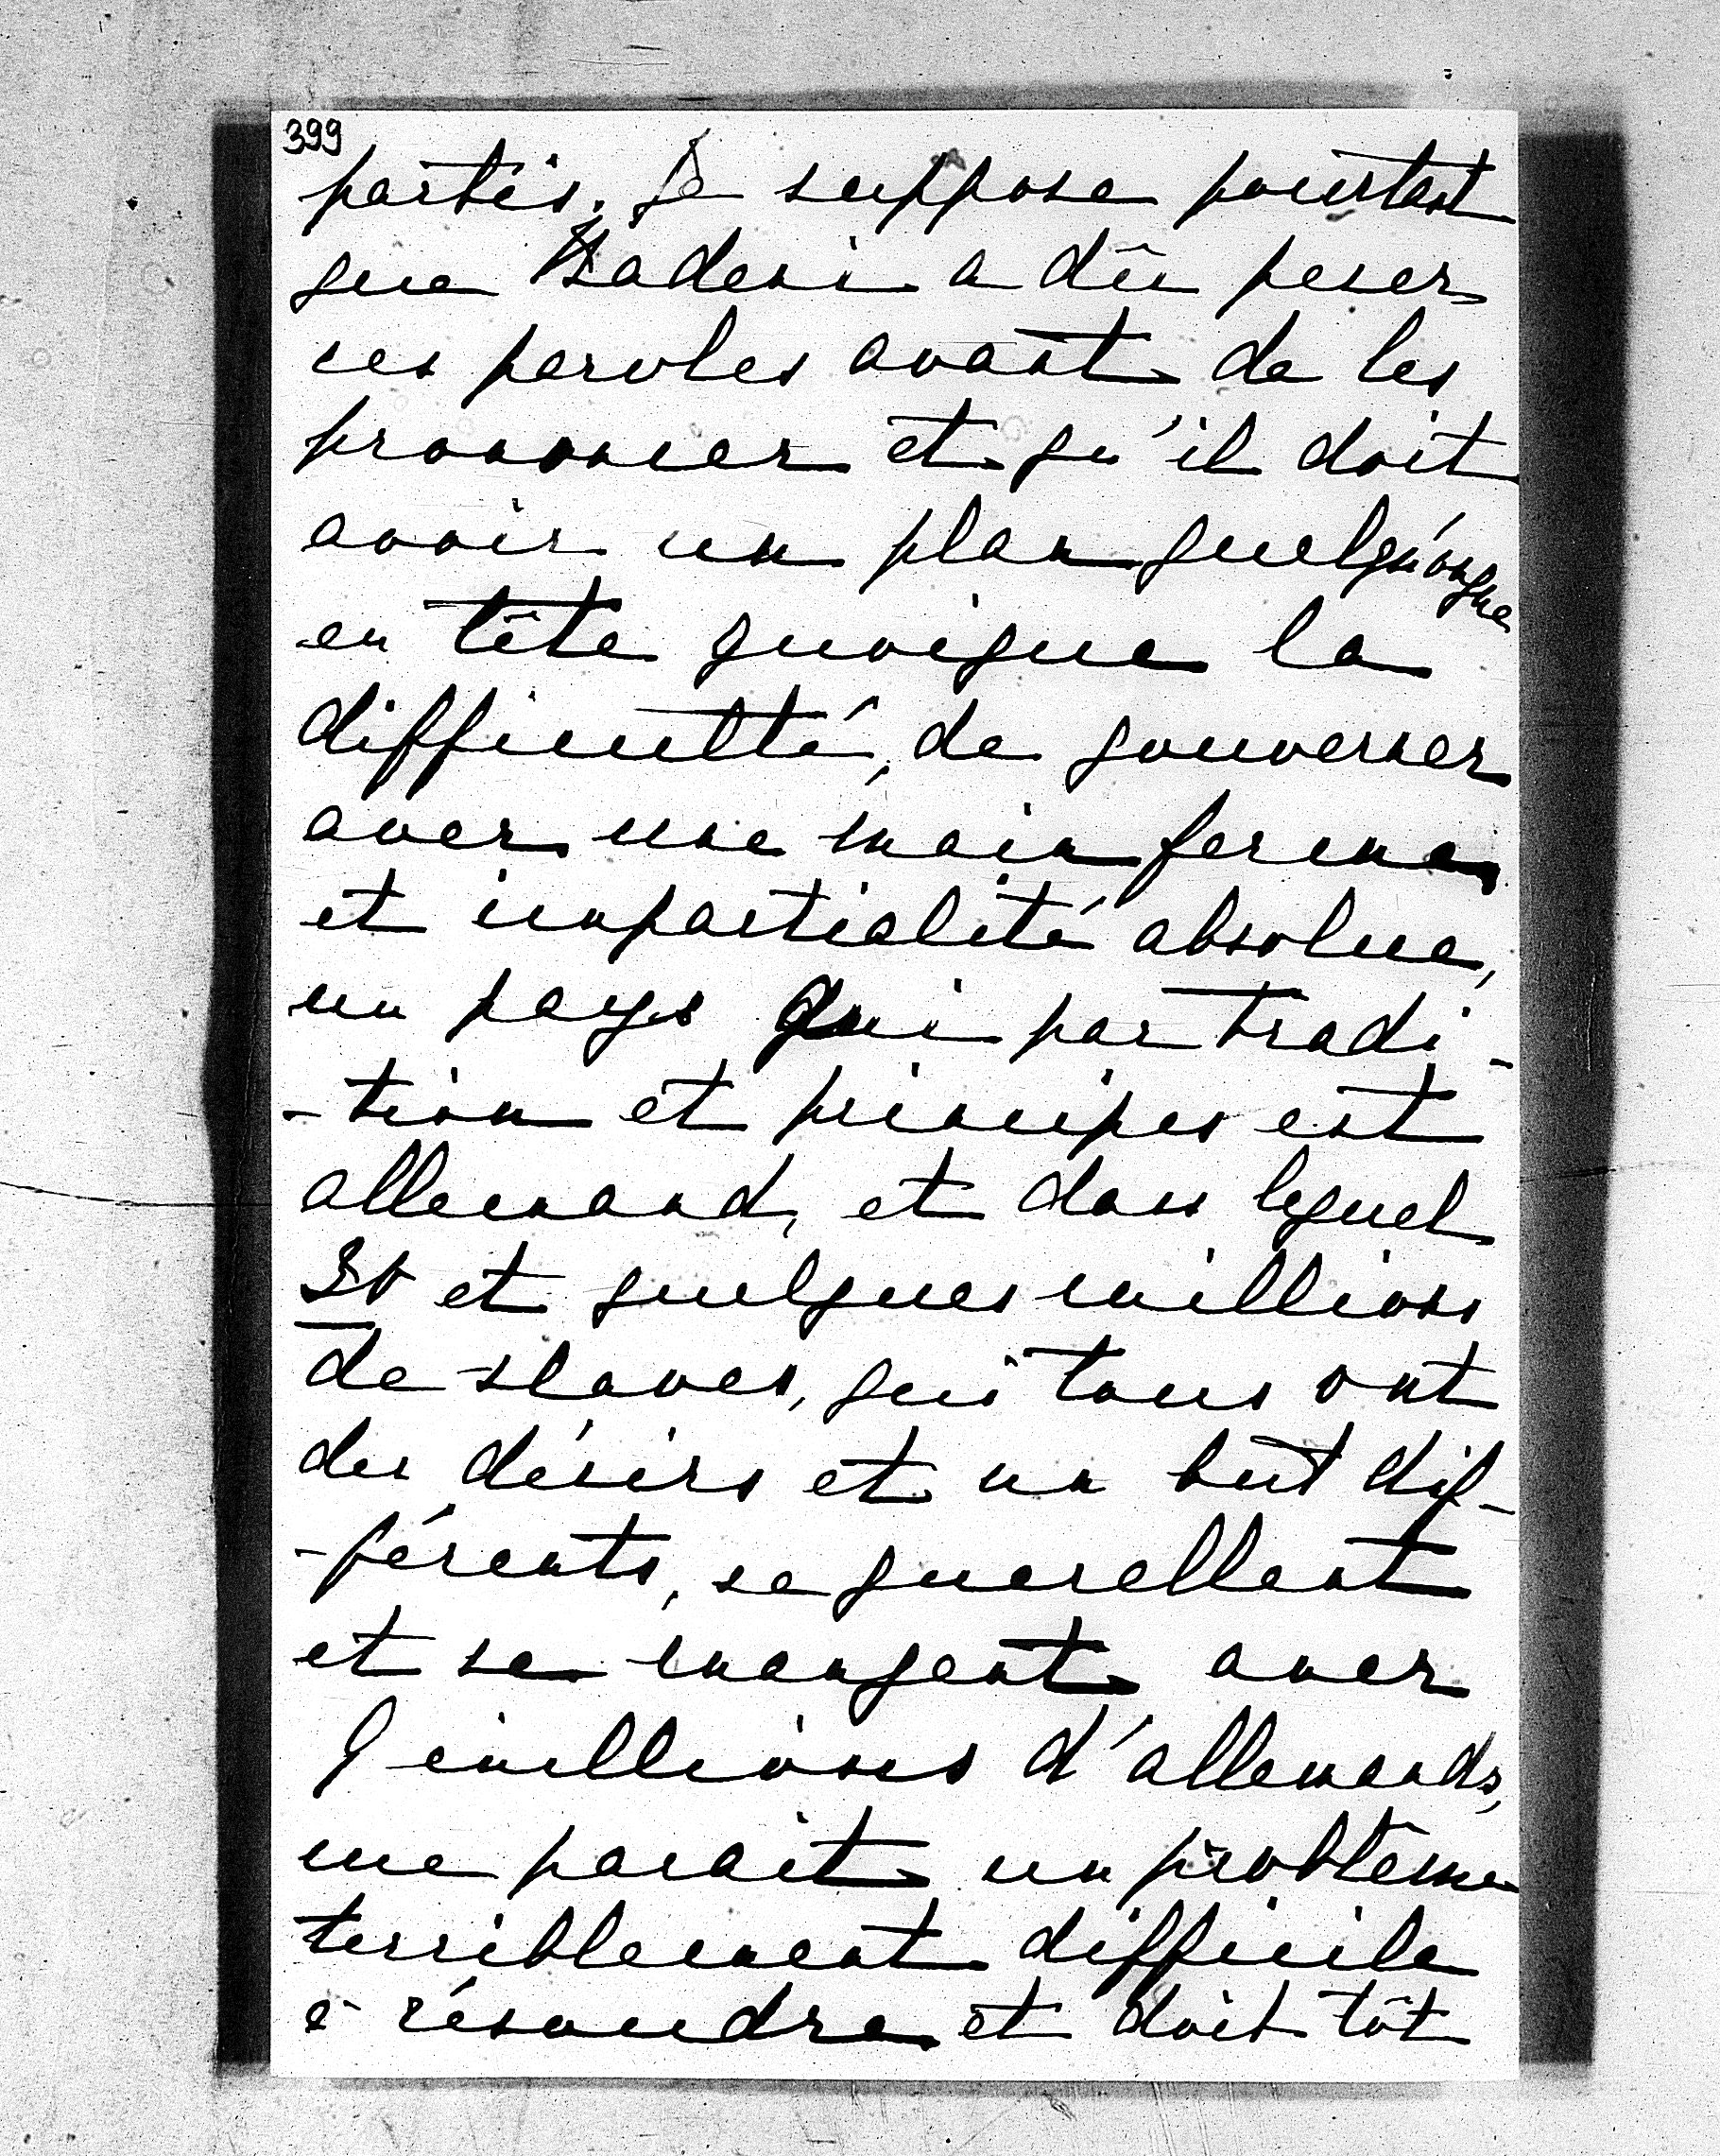 399
partis. Je suppose pourtant
que Badeni a dû peser
ces paroles avant de les
prononcer et qu'il doit
avoir un plan quelqu'onque
en tête quoique la
difficultté, de gouverner
avec une main ferme,
et impartialité absolue,
un pays qui par tradi-
-tion et principes est
allemand, et dans lequel
30 et quelques millions
de slaves, qui tous ont
des désirs et un but dif-
-férents, se querellent
et se mangent avec
9 millions d'allemands,
me parait un problème
terriblement difficile
à résoudre et doit tôt